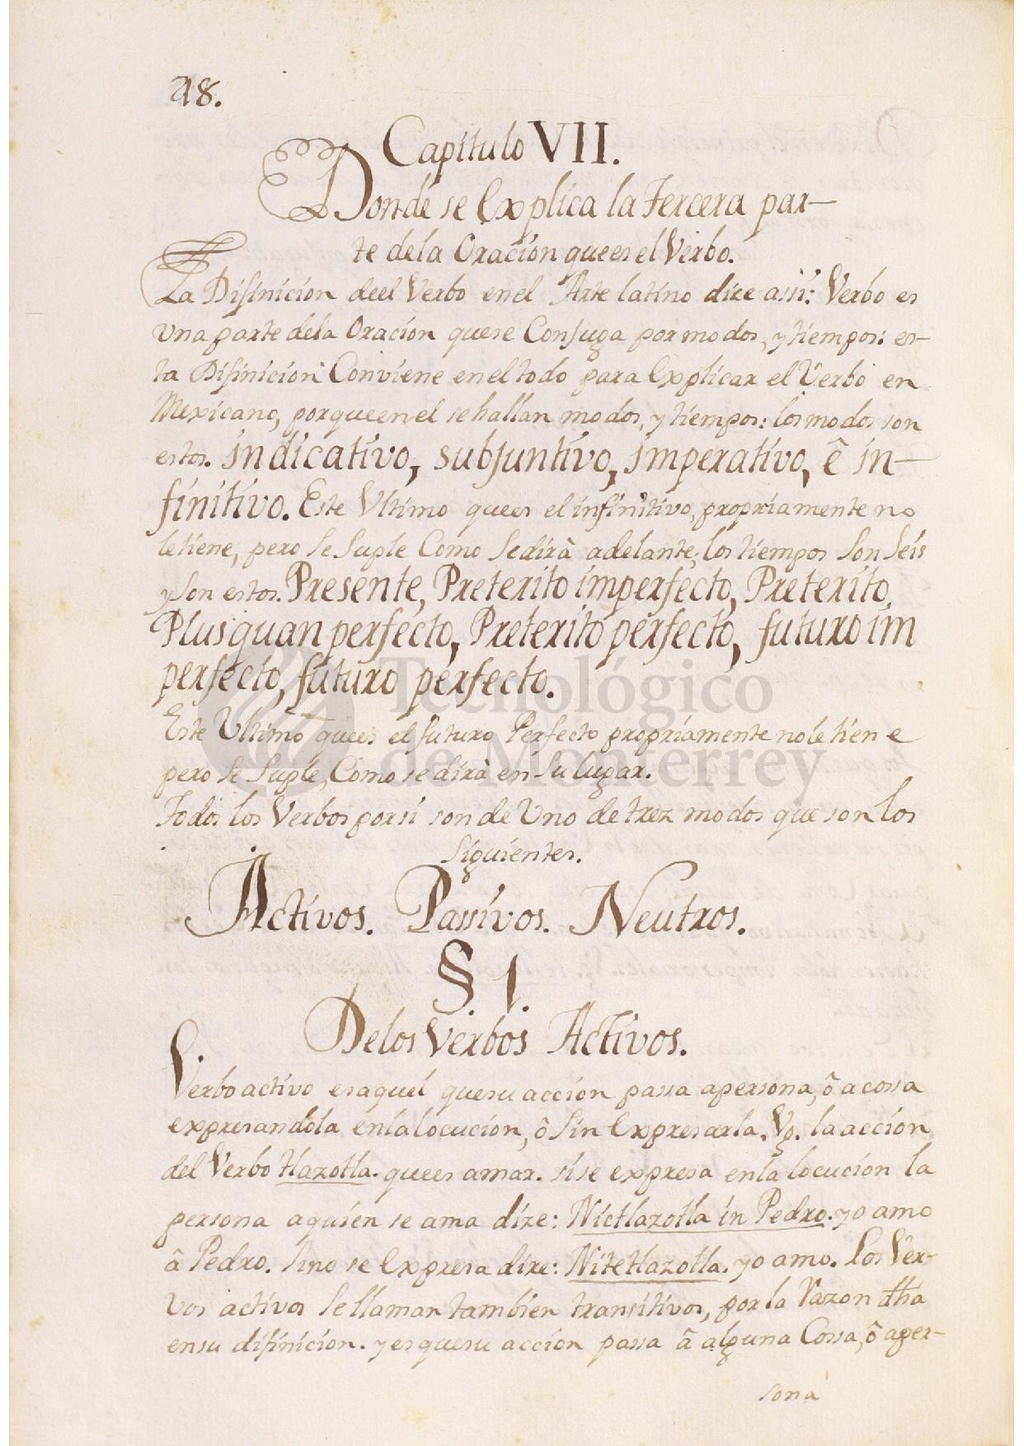 48.
Capitulo VII.
Donde se Explica la Tercera par-
te dela Oracion quees el Verbo.
La Difinicion deel Verbo enel Arte latino dize assi: Verbo es
Una parte dela Oracion quese Conjuga por modos, y tiempos: es-
ta Difinicion Conviene enel todo para Explicar el Verbo en
Mexicano, porqueen el se hallan modos, y tiempos: los modos son
estos. indicativo, subjuntivo, imperativo, ê in-
finitivo. Este Ultimo quees el infinitivo, propriamente no
letiene, pero Se Suple Como Sedirà adelante; los tiempos Son Seis
y Son estos. Presente, Preterito imperfecto, Preterito,
Plusquan perfecto, Preterito perfecto, futuro im
perfecto, futuro perfecto.
Este Ultimo quees el futuro Perfecto propriamente nole tiene
pero Se Suple, Como se dirà en Su lugar.
Todos los Verbos por si son de Uno de trez modos que son los
Siguientes.
Activos. Passivos. Neutros.
§. 1.
Delos Verbos Activos.
Verbo activo es aquel quesu accion passa apersona, ô a cossa
expresandola enla locucion, ô Sin Expresarla. Vg. la accion
del Verbo tlazotla. quees amar. si se expresa enla locucion la
persona aquien se ama dize: Nictlazotla in Pedro. yo amo
â Pedro. Sino se Expresa dize: Nitetlazotla. yo amo. Los Ver-
vos activos Se llaman tambien transitivos, por la Razon dha
ensu difinicion. y es quesu accion passa â alguna Cossa, ô aper-
sona
Tecnológico
de Monterrey